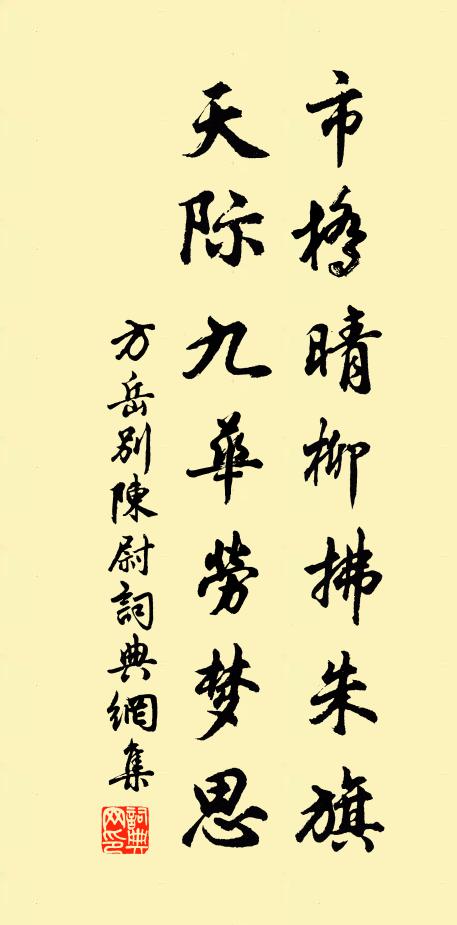 市橋晴柳拂朱旗
天际九華勞梦思
方岳别陳尉詞典網集
詞典网印